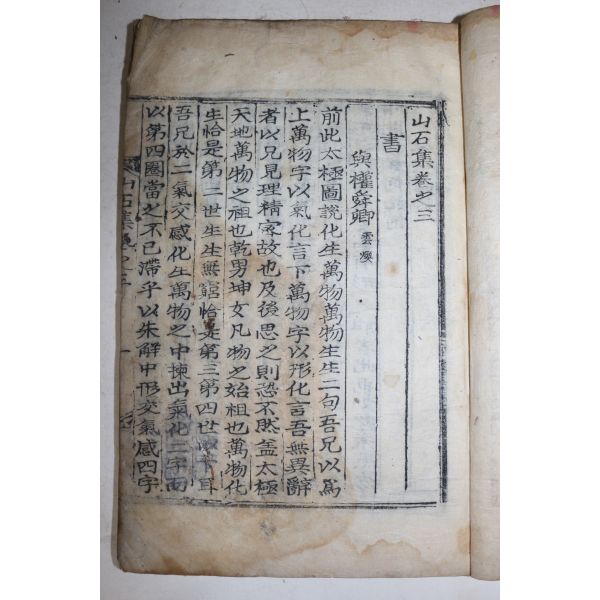 山石集卷之三
書
與權舜卿 雲煥
前此太極圖說化生萬物萬物生生二句吾兄以爲
上萬物字以氣化言下萬物字以形化言吾無異辭
者以兄見理精家故也及後思之則恐不然盖太極
天地萬物之祖也乾男坤女凡物之始祖也萬物化
生恰是第二世生生無窮恰是第三第四世 耳
吾兄於二氣交感化生萬物之中揀出氣化二字而
以第四圈當之不已滯乎以朱解中形交氣感四字
山石集 卷之三 一